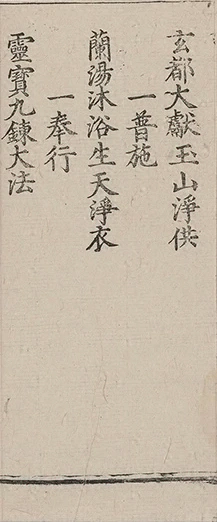 玄都大獻玉山淨供
一普施
蘭湯沐浴生天淨衣
一奉行
靈寶九鍊大法